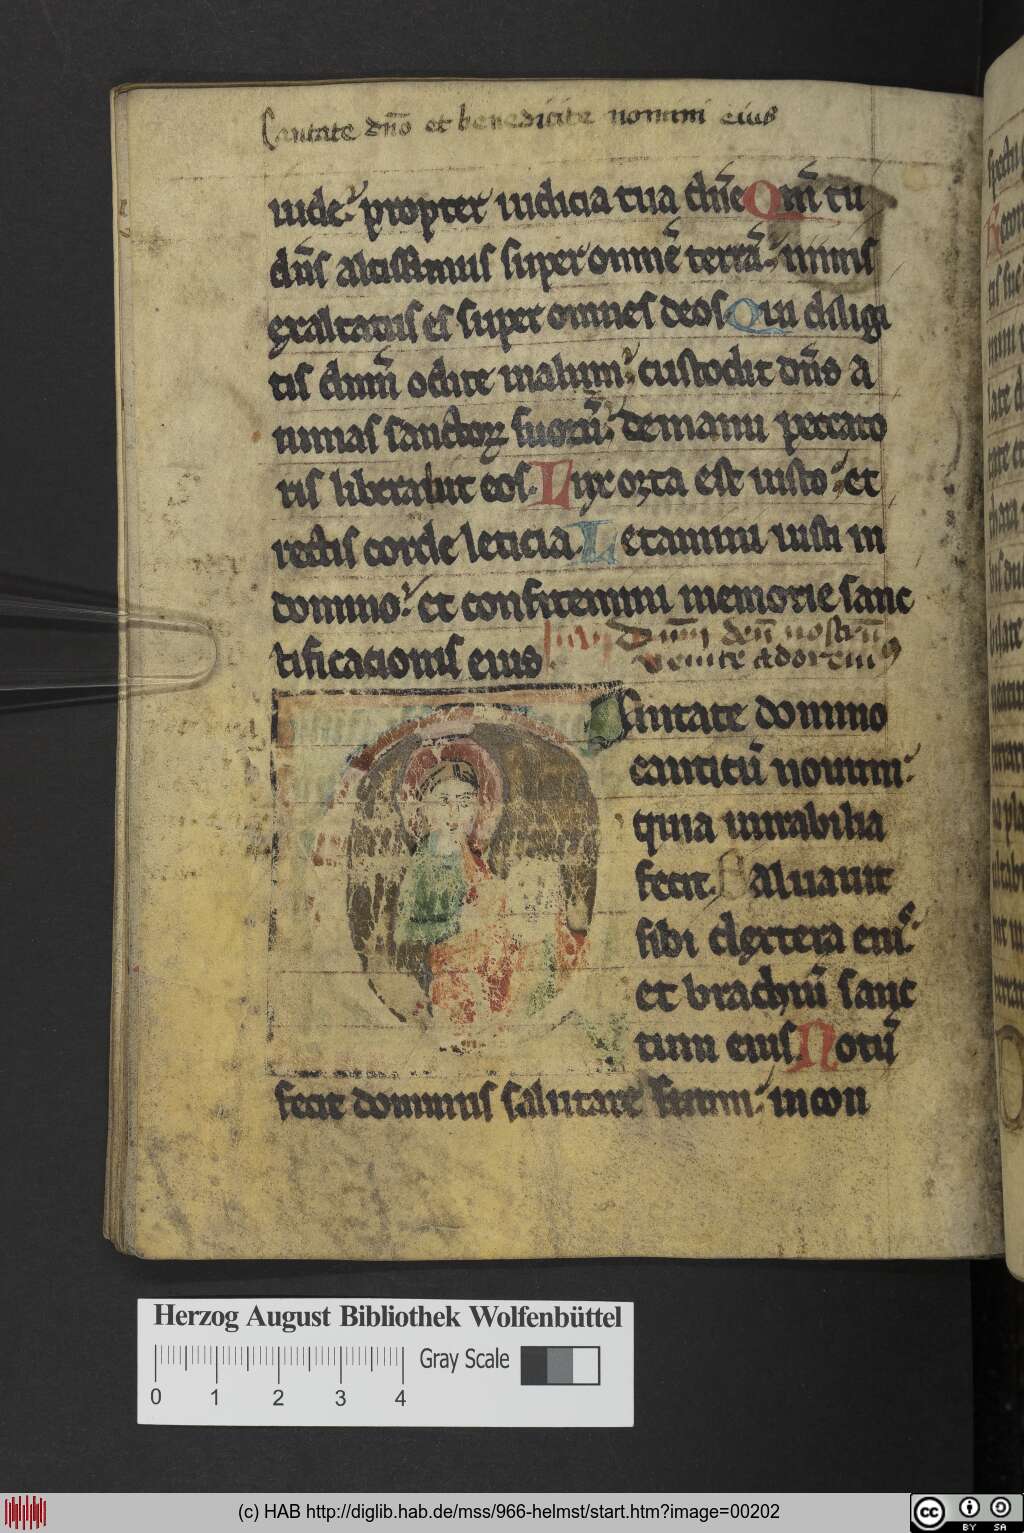 Cantate dn̄o et benedicite nomini eius
iude. propter iudicia tua dn̄e Qm̄ tu
dn̄s altissimus super omnē terrā. nimis
exaltatus es super omnes deos. Qui diligi
tis dnm̄ odite malum. custodit dn̄s a
nimas sanctoꝝ suorū. de manu peccato
ris liberabit eos. Lux orta est iusto. et
rectis corde leticia. Letamini iusti in
domino. et confitemini memorie sanc
tificationis eius
dn̄m dm̄ nostrū
venite adoremꝰ
Cantate domino
canticū novum.
quia mirabilia
fecit. Saluauit
sibi dextera eius.
et brachiū sanc
tum eius. Notū
fecit dominus salutare suum. in con
Herzog August Bibliothek Wolfenbüttel
Gray Scale
0 1 2 3 4
(c) HAB http://diglib.hab.de/mss/966-helmst/start.htm?image=00202
cc BY SA